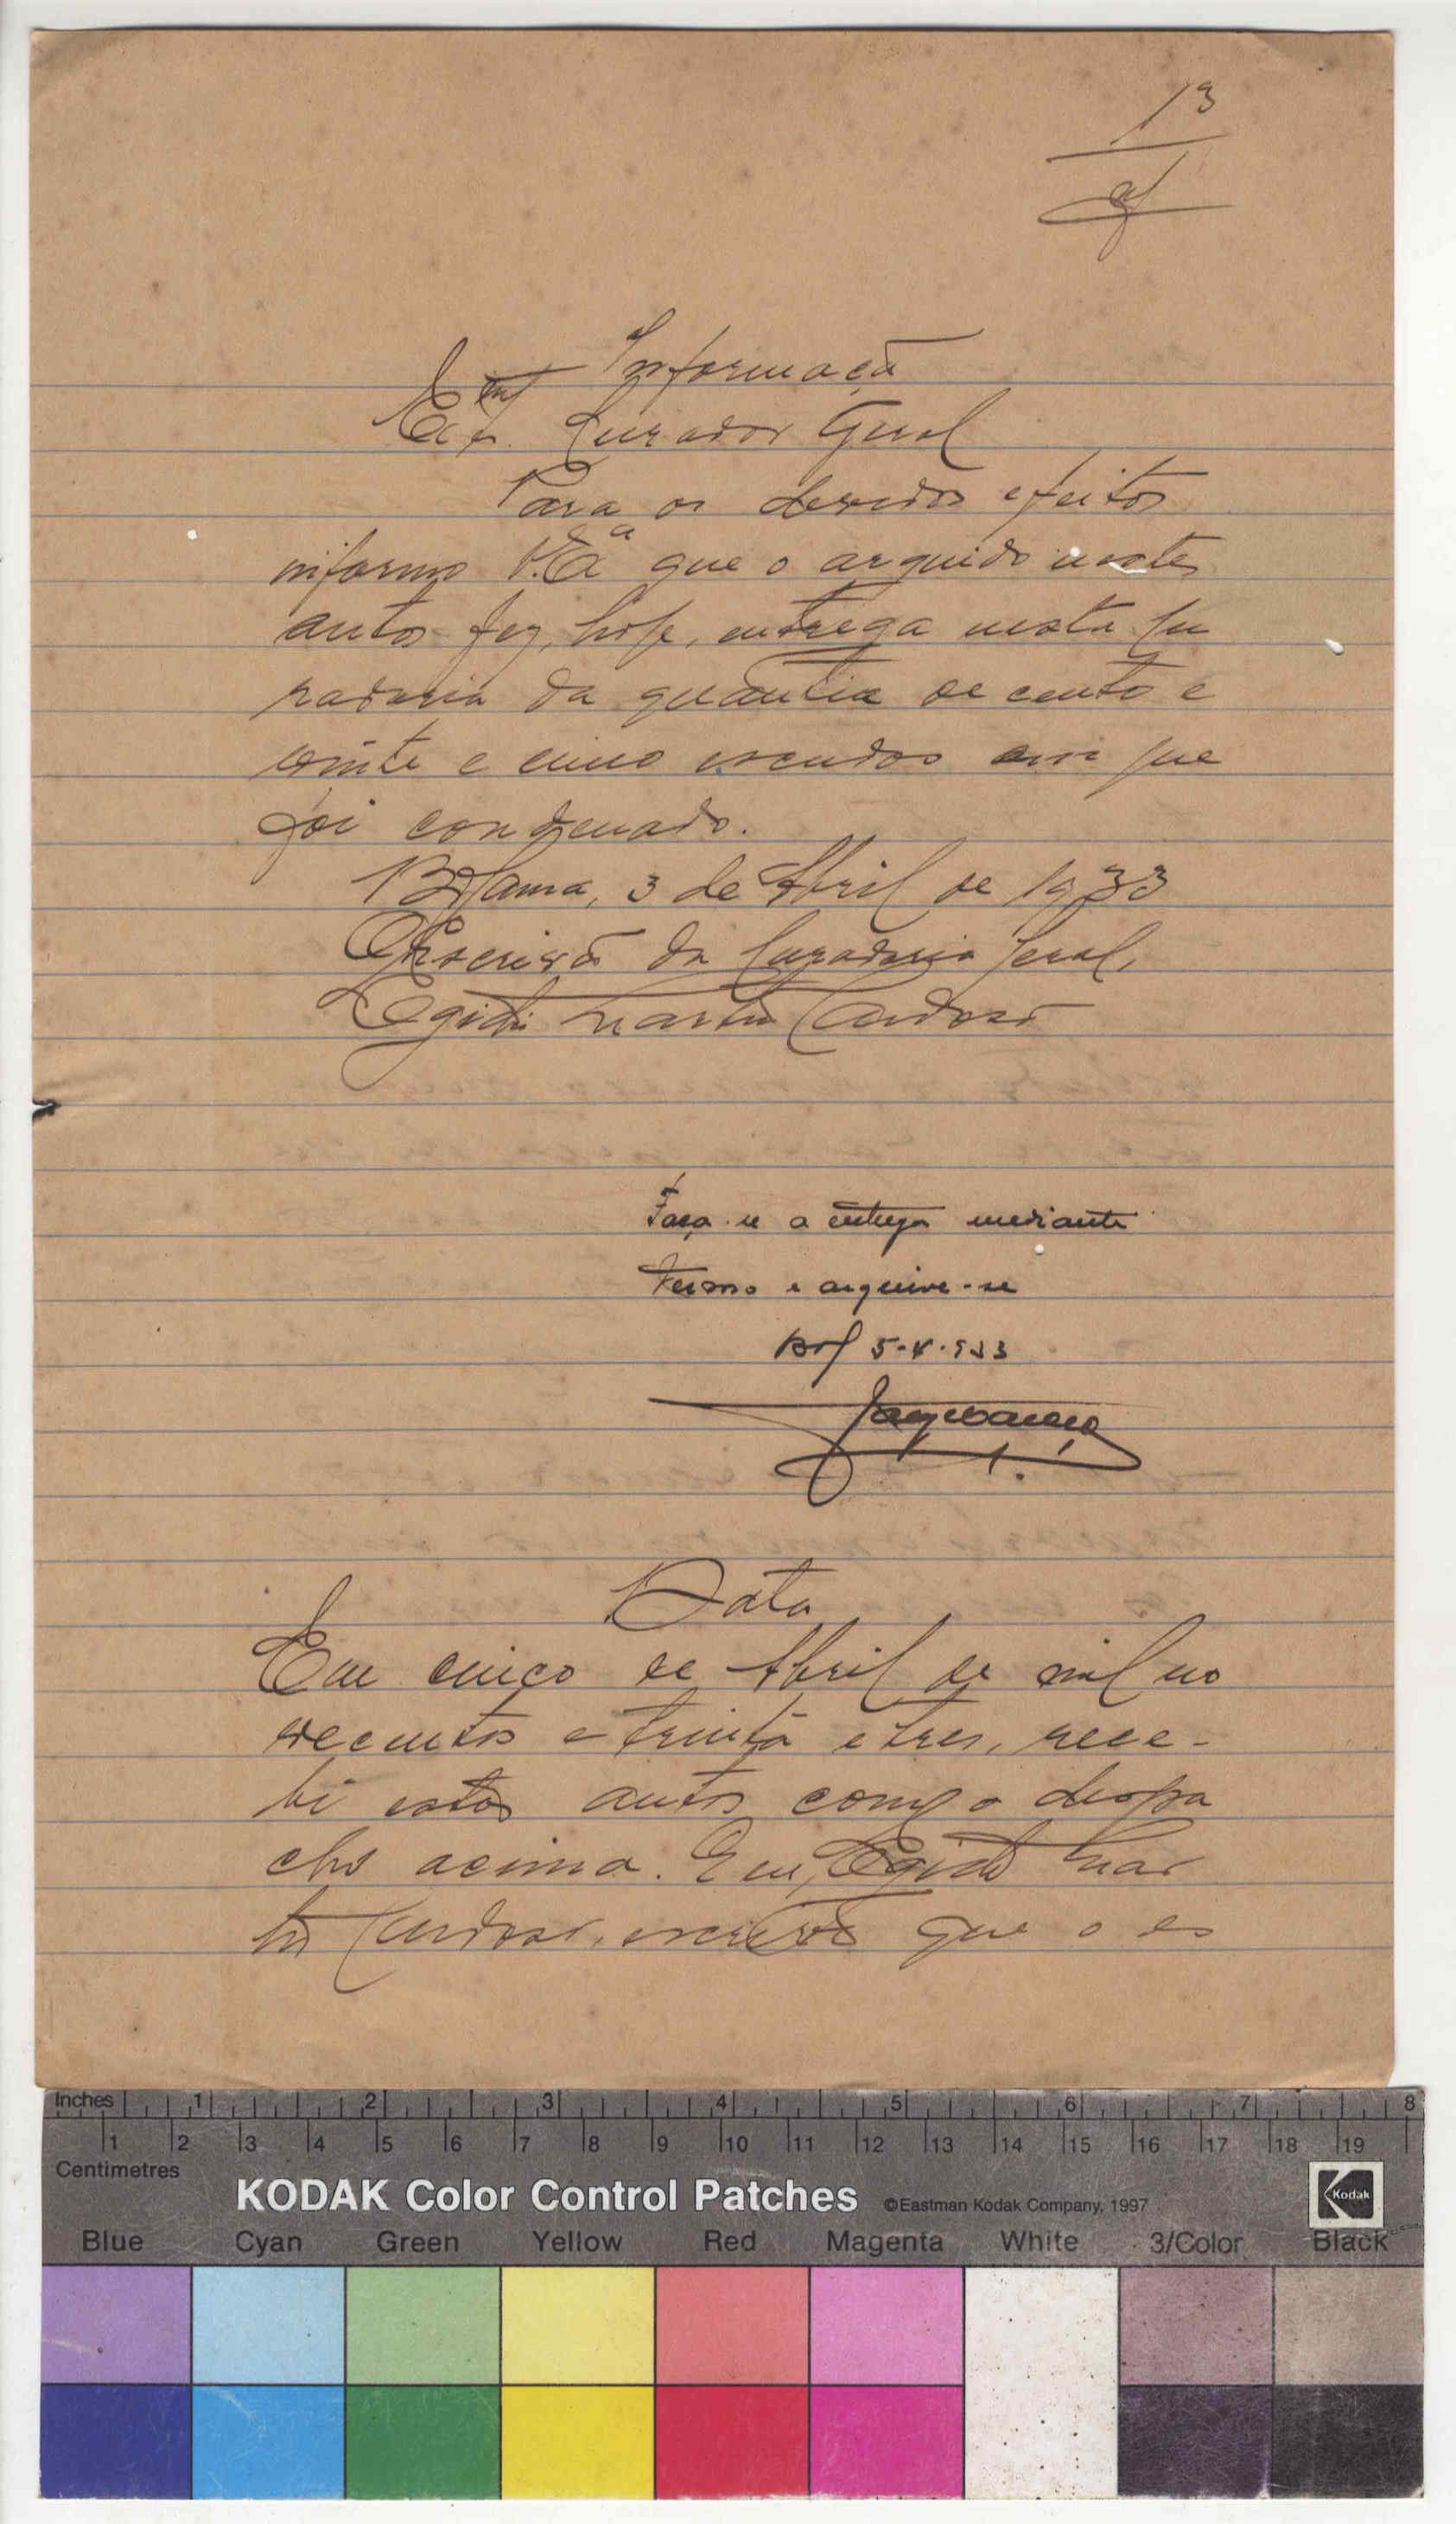 13
Informação
Exmº. Curador Geral
Para os devidos efeitos
informo V. Exª que o arguido nestes
autos fez, hoje, entrega nesta Cu
radoria da quantia de cento e
vinte e cinco escudos em que
foi condenado.
Bolama, 3 de Abril de 1933
O Escrivão da Curadoria Geral,
Egidio Martins Cardoso
Faça-se a entrega mediante
termo e arquive-se
Bol 5-4-933
Data
Em cinco de Abril de mil no
vecentos e trinta e tres, rece-
bi estes autos com o despa
cho acima. Eu, Egidio Mar
tins Cardoso, escrivão que o es
Inches 1 2 3 4 5 6 7 8
1 2 3 4 5 6 7 8 9 10 11 12 13 14 15 16 17 18 19
Centimetres
KODAK Color Control Patches ©Eastman Kodak Company, 1997 Kodak
Blue Cyan Green Yellow Red Magenta White 3/Color Black